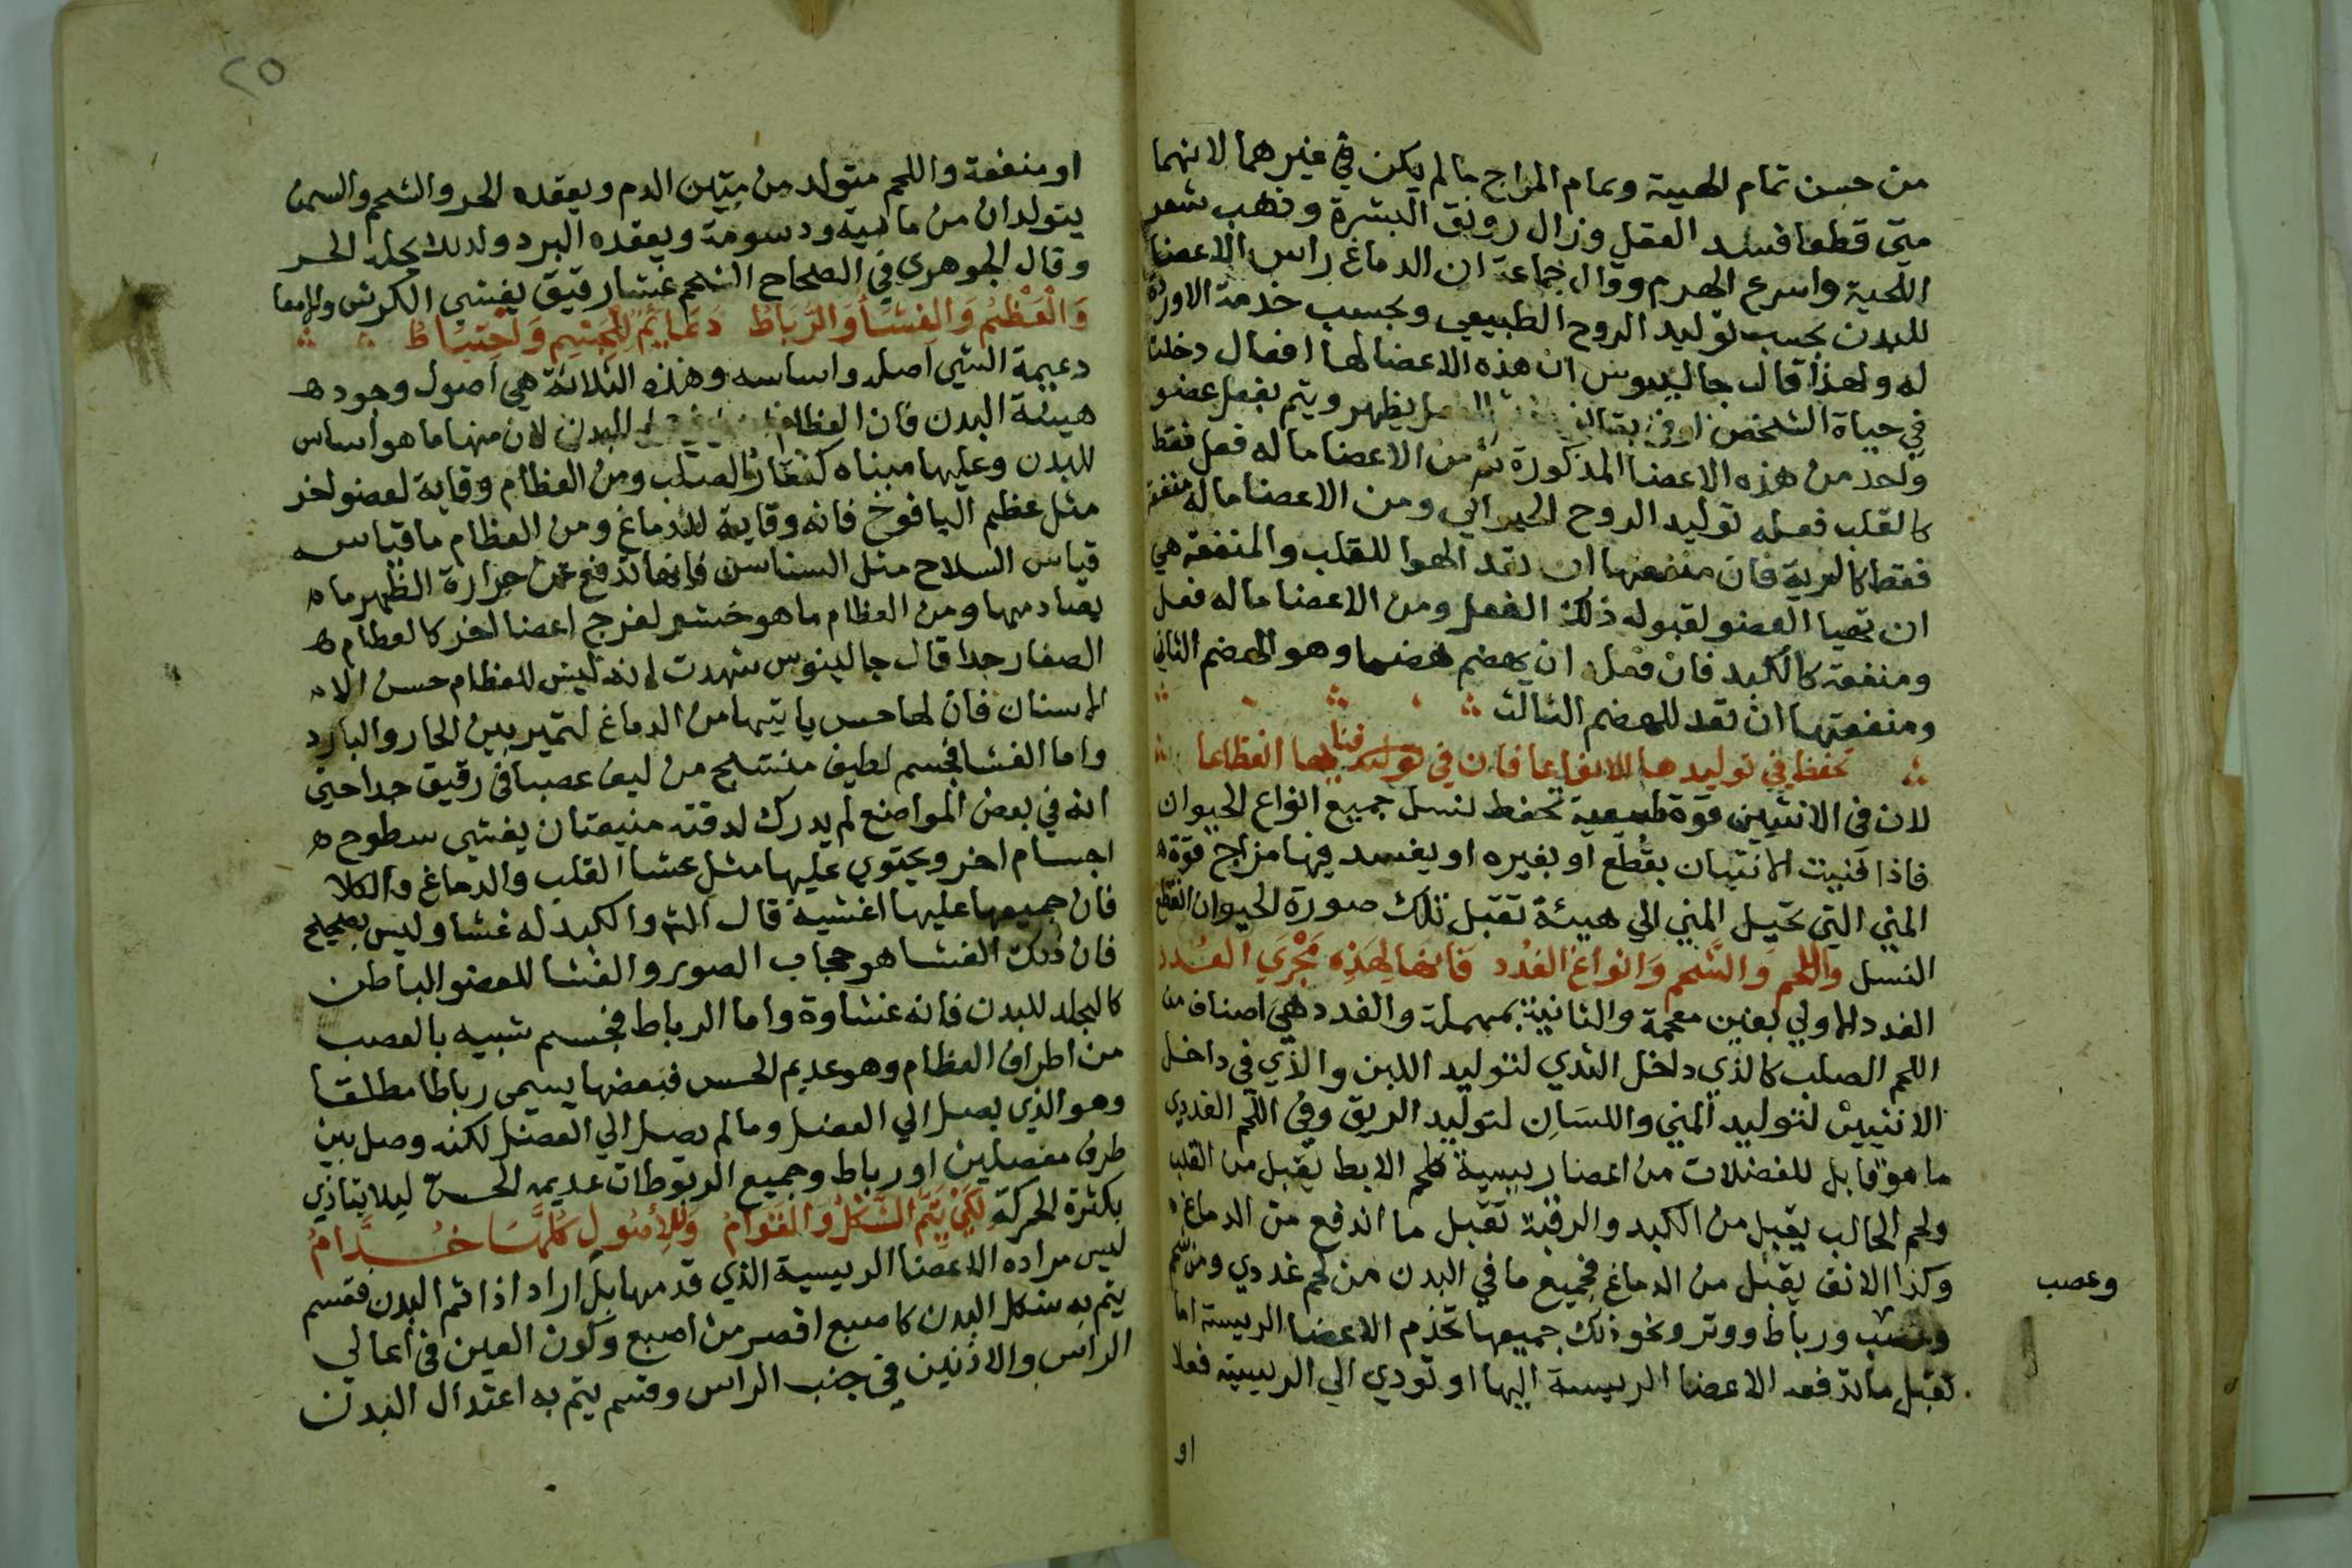 من حسن تمام الهيبة وتمام المزاج ما لم يكن في غيرهما لانهما
متي قطعا فسد العقل وزال رونق البشرة وذهب شعر
اللحية واسرع الهرم وقال جماعة ان الدماغ راس الاعضا
للبدن بحسب توليد الروح الطبيعي وبحسب خدمة الاوردة
له ولهذا قال جالينوس ان هذه الاعضا لها افعال دخلت
في حياة الشخص او في بقا يظهر ويتم بفعل عضو
واحد من هذه الاعضا المذكورة ثم من الاعضا ما له فعل فقط
كالقلب فعله توليد الروح الحيواني ومن الاعضا ما له منفعة
فقط كالرية فان منفعتها ان تعد الهوا للقلب والمنفعة هي
ان تهيا العضو لقبوله ذلك الفعل ومن الاعضا ما له فعل
ومنفعة كالكبد فان فعله ان يهضم هضما وهو الهضم الثاني
ومنفعتها ان تعد للهضم الثالث
تحفظ في توليدها الانواعا فان في فنايها انقطاعا
لان في الانثيين قوة طبيعية تحفظ لنسل جميع انواع الحيوان
فاذا فنيت الانثيان بقطع او بغيره او يفسد فيها مزاج قوة
المني التي تحيل المني الي هيئة تقبل تلك صورة الحيوان انقطع
النسل واللحم والشحم وانواع الغدد فانها لهذه مجري العدد
الغدد الاولي بغين معجمة والثانية بمهملة والغدد هي اصناف من
اللحم الصلب كالذي داخل الثدي لتوليد اللبن والذي في داخل
الانثيين لتوليد المني واللسان لتوليد الريق وفي اللحم الغددي
ما هو قابل للفضلات من اعضا رييسية كلحم الابط يقبل من القلب
ولحم الحالب يقبل من الكبد والرقبة تقبل ما اندفع من الدماغ
وكذا الانف يقبل من الدماغ فجميع ما في البدن من لحم غددي ومن شحم
وعصب
وعصب ورباط ووتر ونحو ذلك جميعها تخدم الاعضا الرييسة اما
تقبل ما تدفعه الاعضا الرييسة اليها او تودي الي الرييسية فعلا
او
٢٥
او منفعة واللحم متولد من متين الدم ويعقده الحر والشحم والسمن
يتولدان من ماييه ودسومة ويعقده البرد ولذلك يحله الحر
وقال الجوهري في الصحاح الشحم غشا رقيق يغشي الكرش والامعا
والعظم والغشا والرباط دعايم للجسم واحتياط
دعيمة الشي اصله واساسه وهذه الثلاثة هي اصول وجود
هيئة البدن فان العظام البدن لان منها ما هو اساس
للبدن وعليها مبناه كفقار الصلب ومن العظام وقاية لعضو اخر
مثل عظم اليافوخ فانه وقاية للدماغ ومن العظام ما قياسه
قياس السلاح مثل السناسن فانها تدفع عن حرارة الظهر ما
يصادمها ومن العظام ما هو حشو لفرج اعضا اخر كالعظام
الصغار جدا قال جالينوس شهدت انه ليس للعظام حس الا
الاسنان فان لها حس ياتيها من الدماغ لتميز بين الحار والبارد
واما الغشا فجسم لطيف منتسج من ليف عصباني رقيق جدا حتي
انه في بعض المواضع لم يدرك لدقته منيعتان يغشي سطوح
اجسام اخر ويحتوي عليها مثل غشا القلب والدماغ والكلا
فان جميعها عليها اغشية قال الش والكبد له غشا وليس بصحيح
فان ذلك الغشا هو حجاب الصور والغشا للعضو الباطن
كالجلد للبدن فانه غشاوة واما الرباط فجسم شبيه بالعصب
من اطراف العظام وهو عديم الحس فبعضها يسمي رباطا مطلقا
وهو الذي يصل الي العضل وما لم يصل الي العضل لكنه وصل بين
طرف مفصلين او رباط وجميع الربوطات عديمه الحس ليلا يتاذي
بكثرة الحركة لكي يتم الشكل والقوام وللاصول كلها خدام
ليس مراده الاعضا الرييسية الذي قدمها بل اراد اذا تم البدن فقسم
يتم به شكل البدن كاصبع اقصر من اصبع وكون العين في اعالي
الراس والاذنين في جنب الراس وقسم يتم به اعتدال البدن